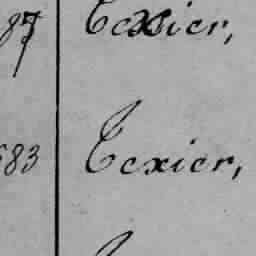 87 Texier,
683 Texier,